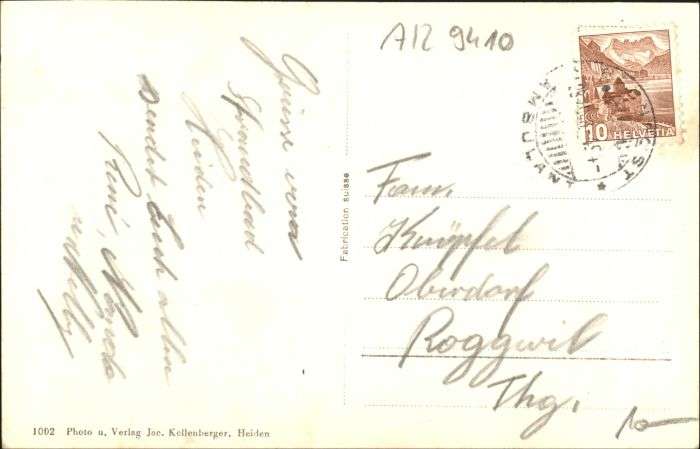 AR 9410
Grüsse vom
Strandbad
Heiden
sendet Euch allen
René,
10 HELVETIA
AMBULANT
Fabrication suisse
Fam.
Knüpfel
Oberdorf
Roggwil
Thg.
10
1002 Photo u. Verlag Jac. Kellenberger, Heiden